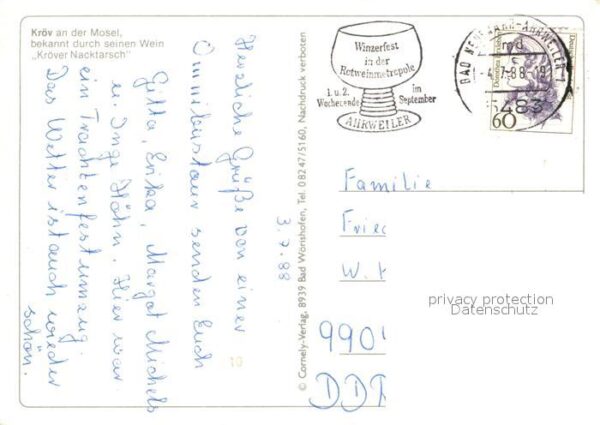 Kröv an der Mosel,
bekannt durch seinen Wein
„Kröver Nacktarsch"
3.7.88
Herzliche Grüße von einer
Omnibustour senden Euch
Gitta, Erika, Margot Michels
u. Inge Höhn. Hier war
ein Trachtenfestumzug.
Das Wetter ist auch wieder
schön.
© Cornely-Verlag, 8939 Bad Wörishofen, Tel. 08247/5160, Nachdruck verboten
Winzerfest
in der
Rotweinmetropole
1. u. 2. im
Wochenende September
AHRWEILER
BAD NEUENAHR-AHRWEILER 1
483
60
Familie
Fried
W.
990
DDR
privacy protection
Datenschutz